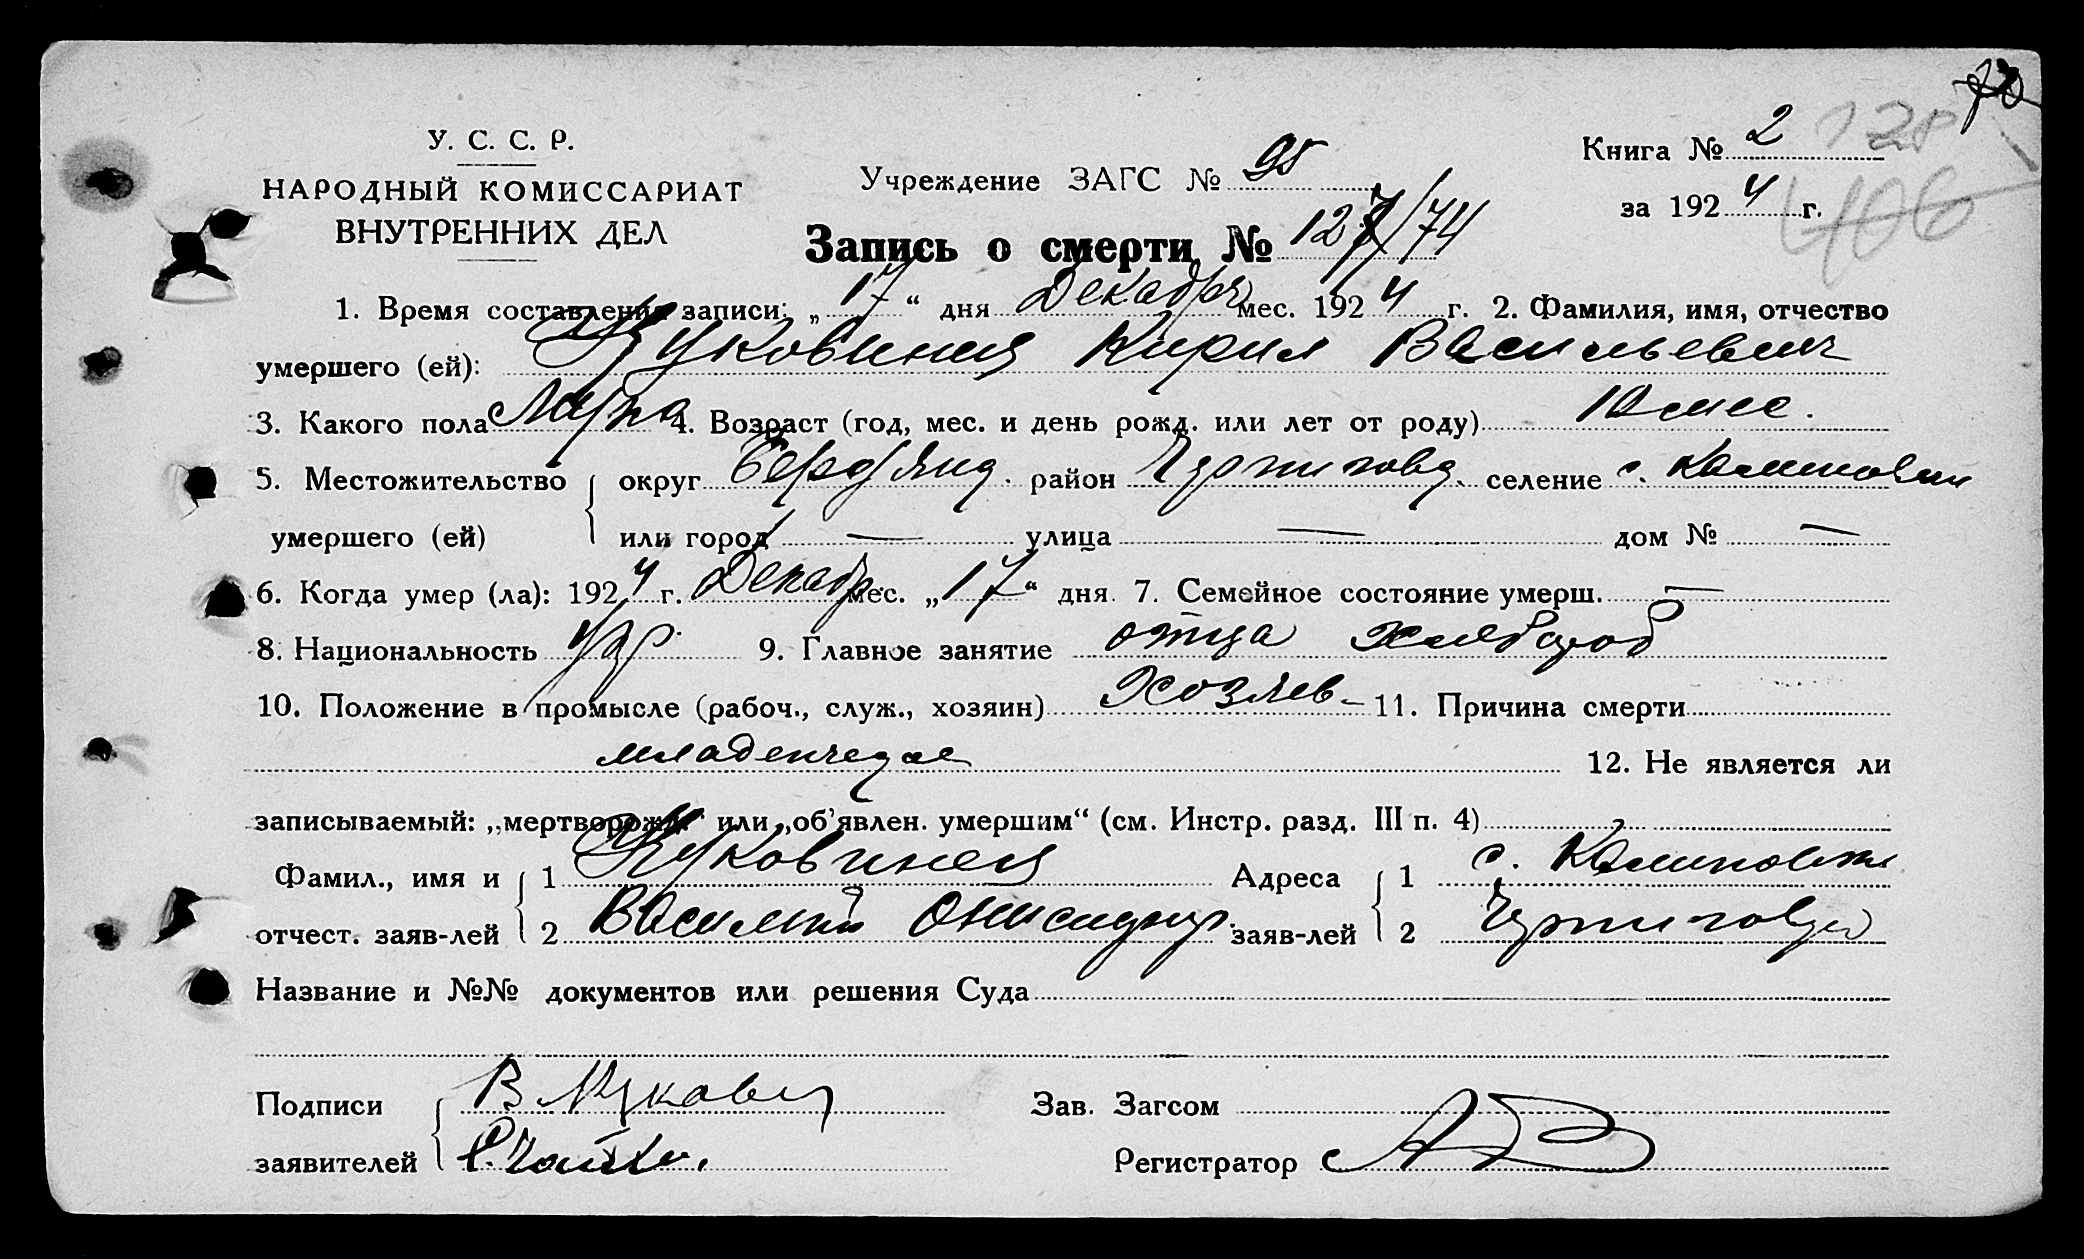 70
У. С. С. Р.
НАРОДНЫЙ КОМИССАРИАТ
ВНУТРЕННИХ ДЕЛ
Учреждение ЗАГС № 95
Книга № 2 128
за 1924 г. 406
Запись о смерти № 127/74
1. Время составления записи: „17“ дня Декабря мес. 1924 г. 2. Фамилия, имя, отчество
умершего (ей): Куковинец Кирил Васильевич
3. Какого пола Муж 4. Возраст (год, мес. и день рожд. или лет от роду) 10 мес.
5. Местожительство округ Бердянс. район Чернигов. селение с. Калиновки
умершего (ей) или город — улица — дом № —
6. Когда умер (ла): 1924 г. Декабр мес. „17“ дня. 7. Семейное состояние умерш. —
8. Национальность укр. 9. Главное занятие отца хлебороб
10. Положение в промысле (рабоч., служ., хозяин) Хозяев- 11. Причина смерти
младенческое 12. Не является ли
записываемый: „мертворожд“ или „об’явлен. умершим“ (см. Инстр. разд. III п. 4)
Фамил., имя и 1 Куковинец Адреса 1 с. Калиновки
отчест. заяв-лей 2 Василий заяв-лей 2
Название и №№ документов или решения Суда
Подписи В Куковинец Зав. Загсом
заявителей Регистратор